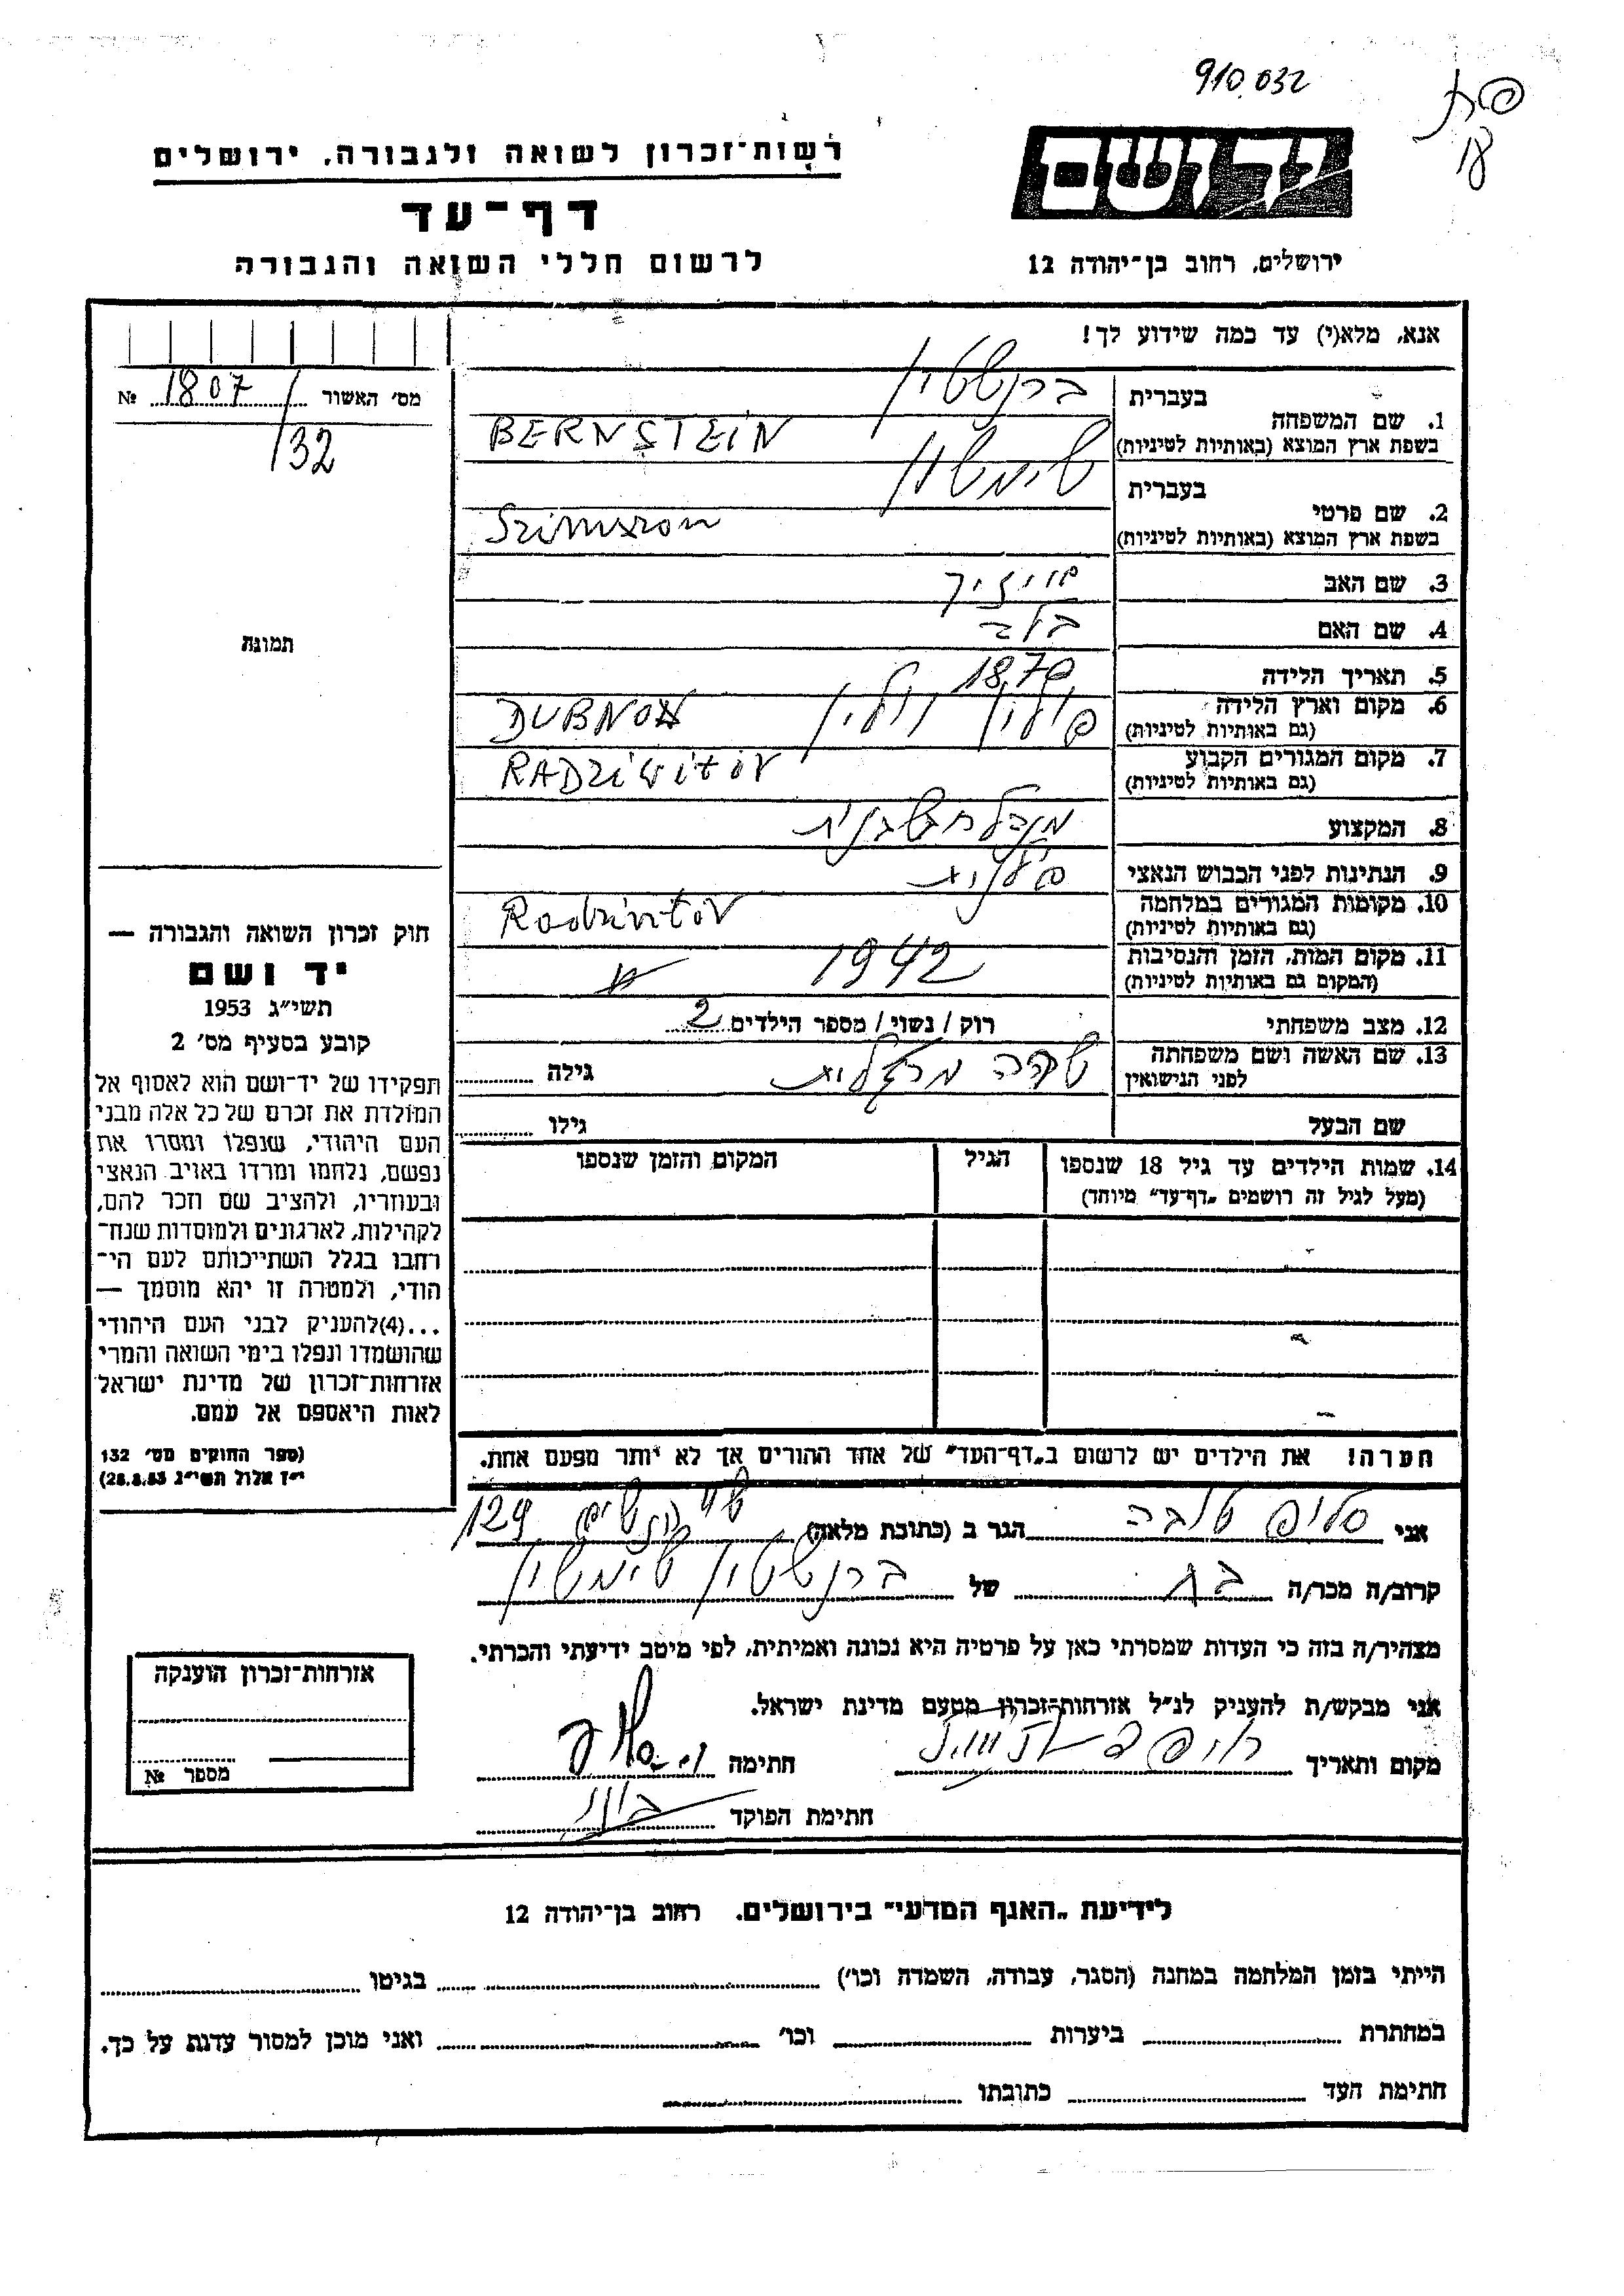 910.032
פת
יד ושם
רשות-זכרון לשואה ולגבורה, ירושלים
דף-עד
לרשום חללי השואה והגבורה
ירושלים, רחוב בן-יהודה 12
אנא, מלא(י) עד כמה שידוע לך!
מס׳ האשור 1807 №
132
1. שם המשפחה בעברית ברנשטיין
בשפת ארץ המוצא (באותיות לטיניות) BERNSTEIN
2. שם פרטי בעברית שימשון
בשפת ארץ המוצא (באותיות לטיניות) Szimszon
3. שם האב
4. שם האם
5. תאריך הלידה 187
6. מקום וארץ הלידה פולין ווולין DUBNO
(גם באותיות לטיניות)
7. מקום המגורים הקבוע RADZIWITOV
(גם באותיות לטיניות)
8. המקצוע מנהל חשבונות
9. הנתינות לפני הכבוש הנאצי פולנית
10. מקומות המגורים במלחמה Radziwitov
(גם באותיות לטיניות)
11. מקום המות, הזמן והנסיבות 1942
(המקום גם באותיות לטיניות)
12. מצב משפחתי רוק / נשוי / מספר הילדים 2
13. שם האשה ושם משפחתה שרה מרגלית גילה
לפני הנישואין
שם הבעל גילו
14. שמות הילדים עד גיל 18 שנספו הגיל המקום והזמן שנספו
(מעל לגיל זה רושמים „דף-עד" מיוחד)
הערה! את הילדים יש לרשום ב„דף-העד" של אחד ההורים אך לא יותר מפעם אחת.
תמונה
חוק זכרון השואה והגבורה —
יד ושם
תשי״ג 1953
קובע בסעיף מס׳ 2
תפקידו של יד-ושם הוא לאסוף אל
המולדת את זכרם של כל אלה מבני
העם היהודי, שנפלו ומסרו את
נפשם, נלחמו ומרדו באויב הנאצי
ובעוזריו, ולהציב שם וזכר להם,
לקהילות, לארגונים ולמוסדות שנח-
רחבו בגלל השתייכותם לעם הי-
הודי, ולמטרה זו יהא מוסמך —
...(4)להעניק לבני העם היהודי
שהושמדו ונפלו בימי השואה והמרי
אזרחות-זכרון של מדינת ישראל
לאות היאספם אל עמם.
(ספר החוקים מס׳ 132
י״ז אלול תשי״ג 28.8.53)
אני סלופ טובה הגר ב (כתובת מלאה) 129
קרוב/ה מכר/ה בת של ברנשטיין שימשון
מצהיר/ה בזה כי העדות שמסרתי כאן על פרטיה היא נכונה ואמיתית, לפי מיטב ידיעתי והכרתי.
אני מבקש/ת להעניק לנ״ל אזרחות-זכרון מטעם מדינת ישראל.
מקום ותאריך חתימה
חתימת הפוקד
אזרחות-זכרון הוענקה
מספר №
לידיעת „האגף המדעי" בירושלים. רחוב בן-יהודה 12
הייתי בזמן המלחמה במחנה (הסגר, עבודה, השמדה וכו׳) בגיטו
במחתרת ביערות וכו׳ ואני מוכן למסור עדות על כך.
חתימת העד כתובתו